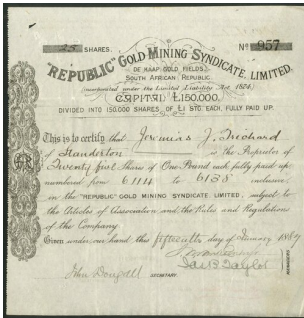 25 SHARES. No 957
"REPUBLIC" GOLD MINING SYNDICATE, LIMITED.
DE KAAP GOLD FIELDS,
SOUTH AFRICAN REPUBLIC
(Incorporated under the Limited Liability Act, 1874)
CAPITAL £150,000.
DIVIDED INTO 150,000 SHARES, OF £1 STG. EACH, FULLY PAID UP.
This is to certify that Jeremias J. Trechard
of Standerton is the Proprietor of
Twenty five Shares of One Pound each fully paid up
numbered from 6114 to 6138 inclusive,
in the "REPUBLIC" GOLD MINING SYNDICATE LIMITED, subject to
the Articles of Association and the Rules and Regulations
of the Company.
Given under our hand this fifteenth day of January 1889
Jas B Taylor
John Dougall SECRETARY. MANAGERS